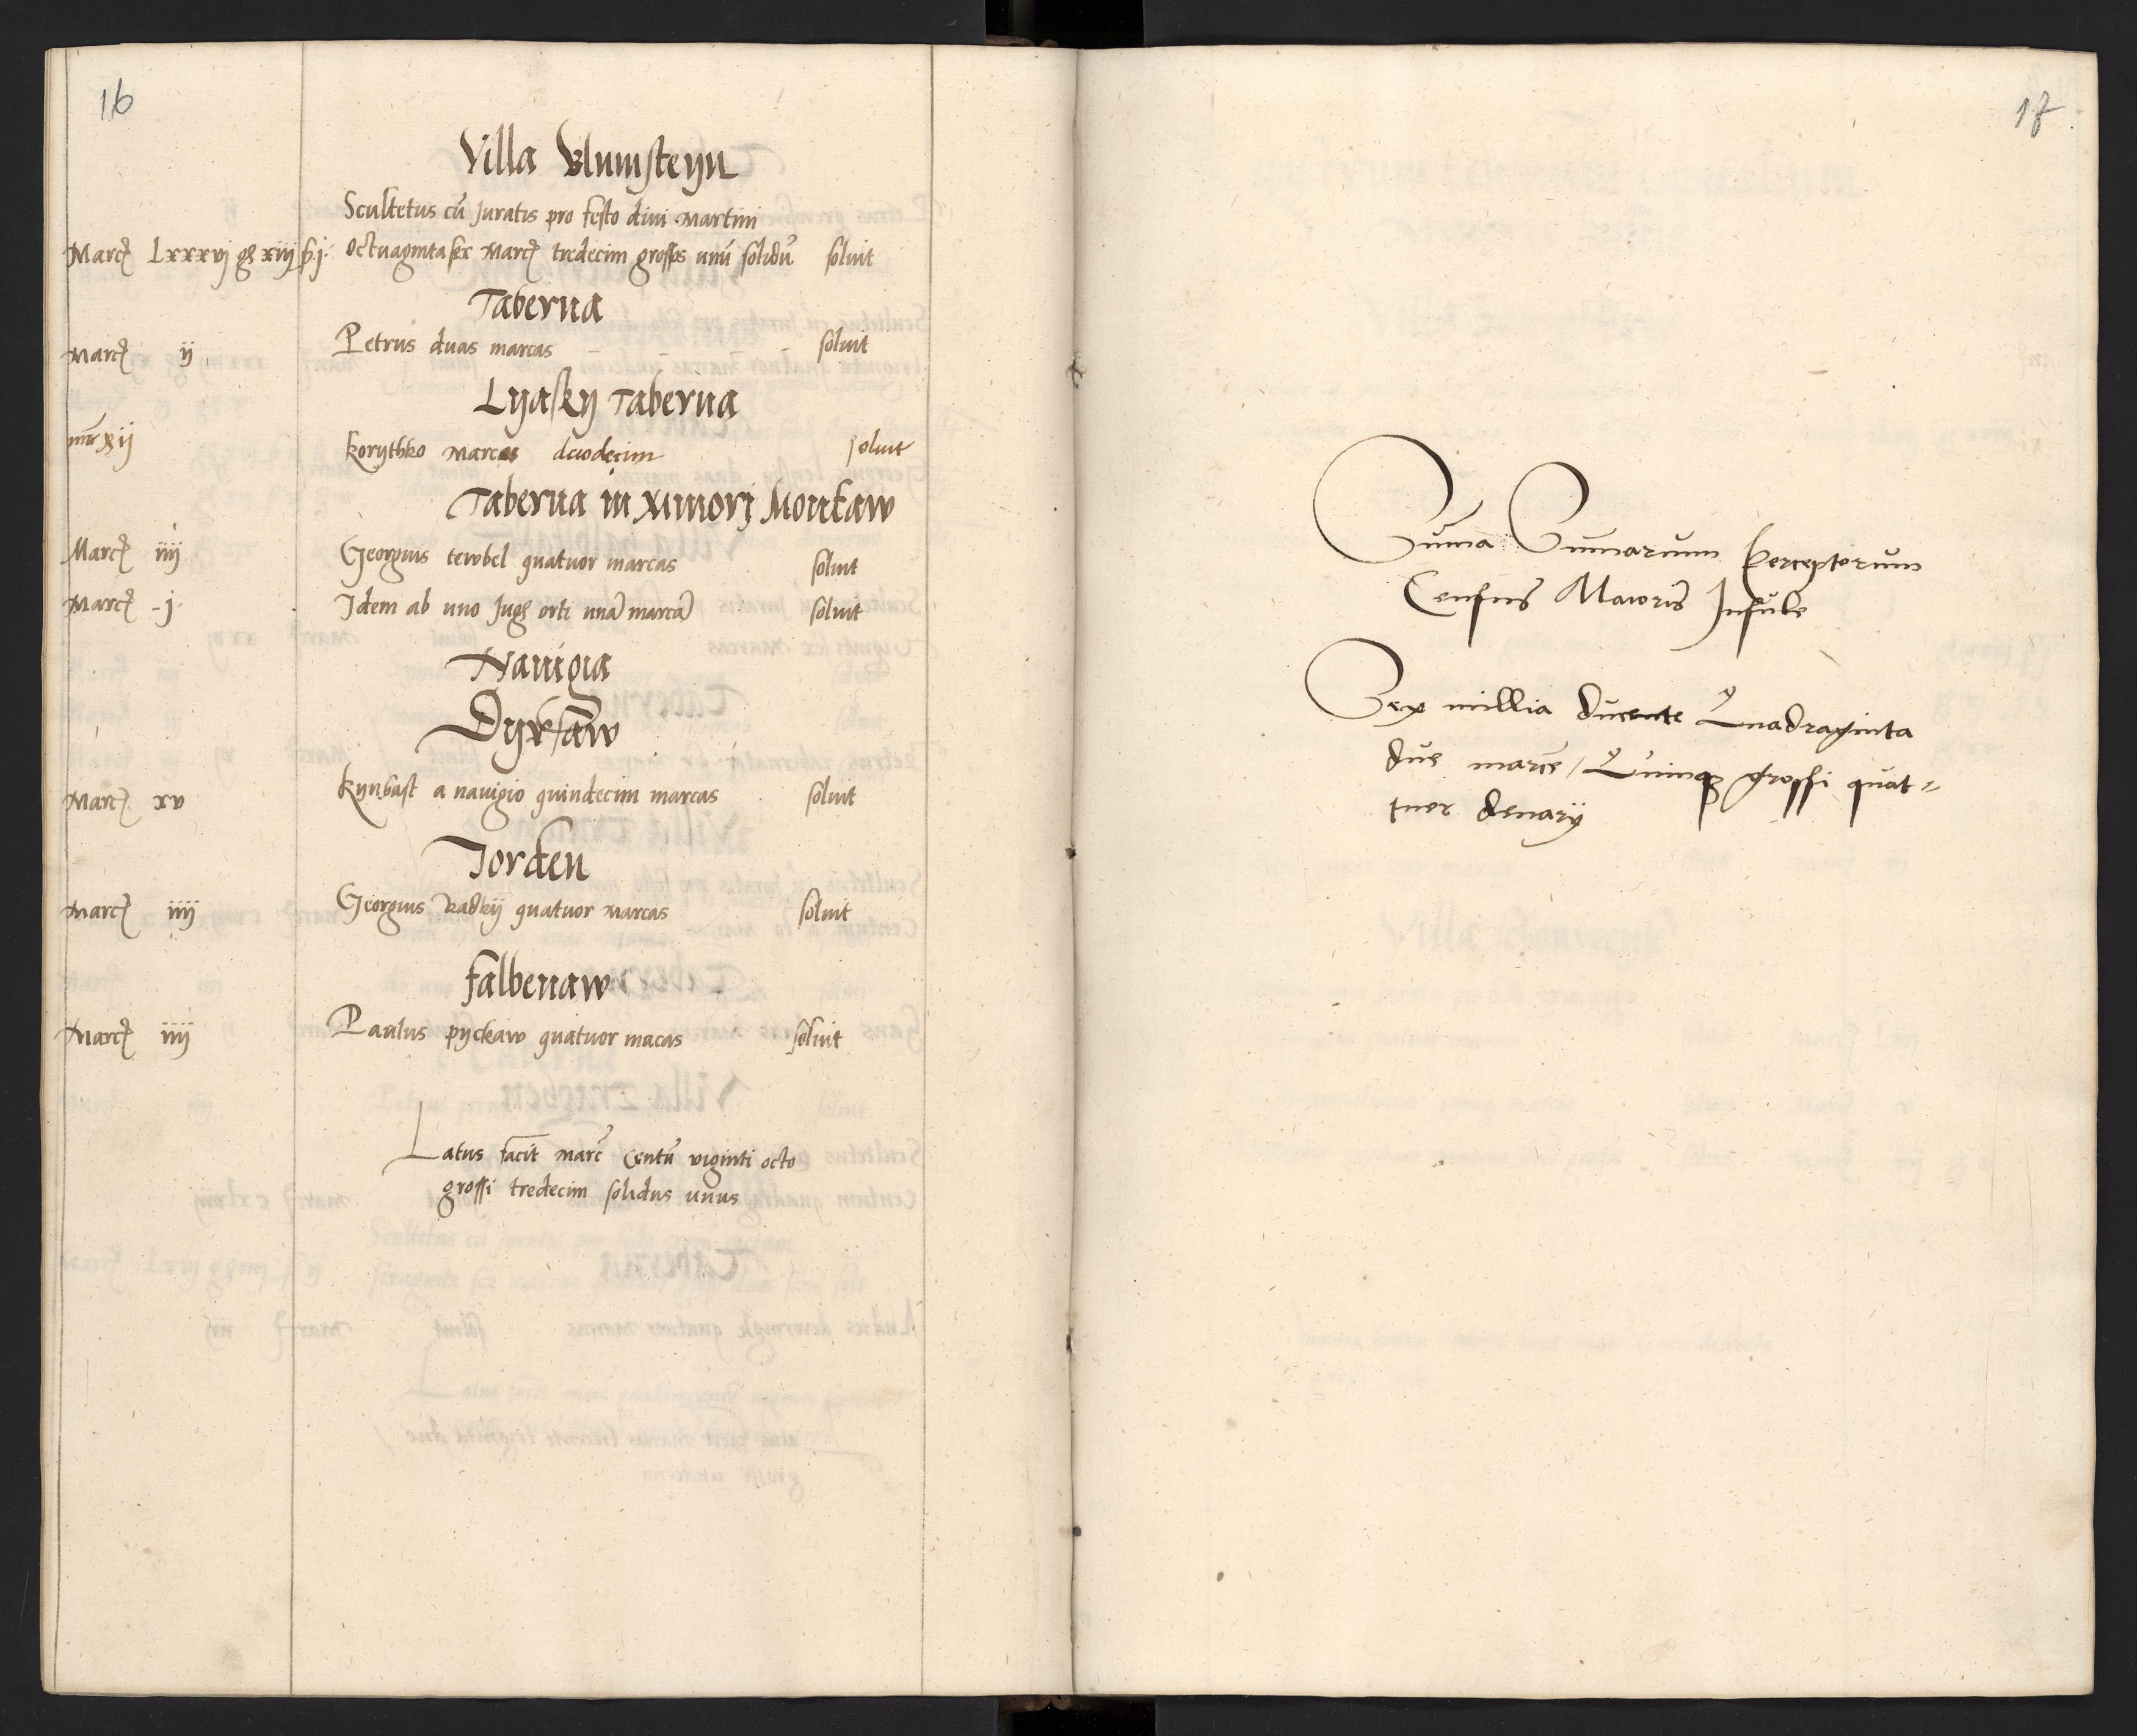 16
Villa Blumsteyn
Scultetus cū Juratis pro festo divi Martini
Marcę Lxxxvj gą xiij ß j. octuagintasex Marcę tredecim grossos unū solidū soluit
Taberna
Marcę ij Petrus duas marcas - - - - soluit
Lyasky Taberna
mr̄ xij korythko Marcas dwodecim soluit
Taberna in Minorj Montaw
Marcę iiij Georgius tewbel quatuor marcas soluit
Marcę -j- Idem ab uno Jugę orti unā marcā soluit
Nauigia
Dyrsaw
Marcę xv kynbast a nauigio quindecim marcas soluit
Jorden
Marcę iiij Georgius Radky quatuor Marcas soluit
falbenaw
Marcę iiij Paulus pyckaw quatuor macas soluit
Latus facit Marc̄ Centū viginti octo
grossi tredecim solidus unus
17
Suma Sumarum perceptorum
Census Maioris Insule
Sex millia ducente Quadraginta
due marce / Quinqȝ grossi quat=
tuor denarij